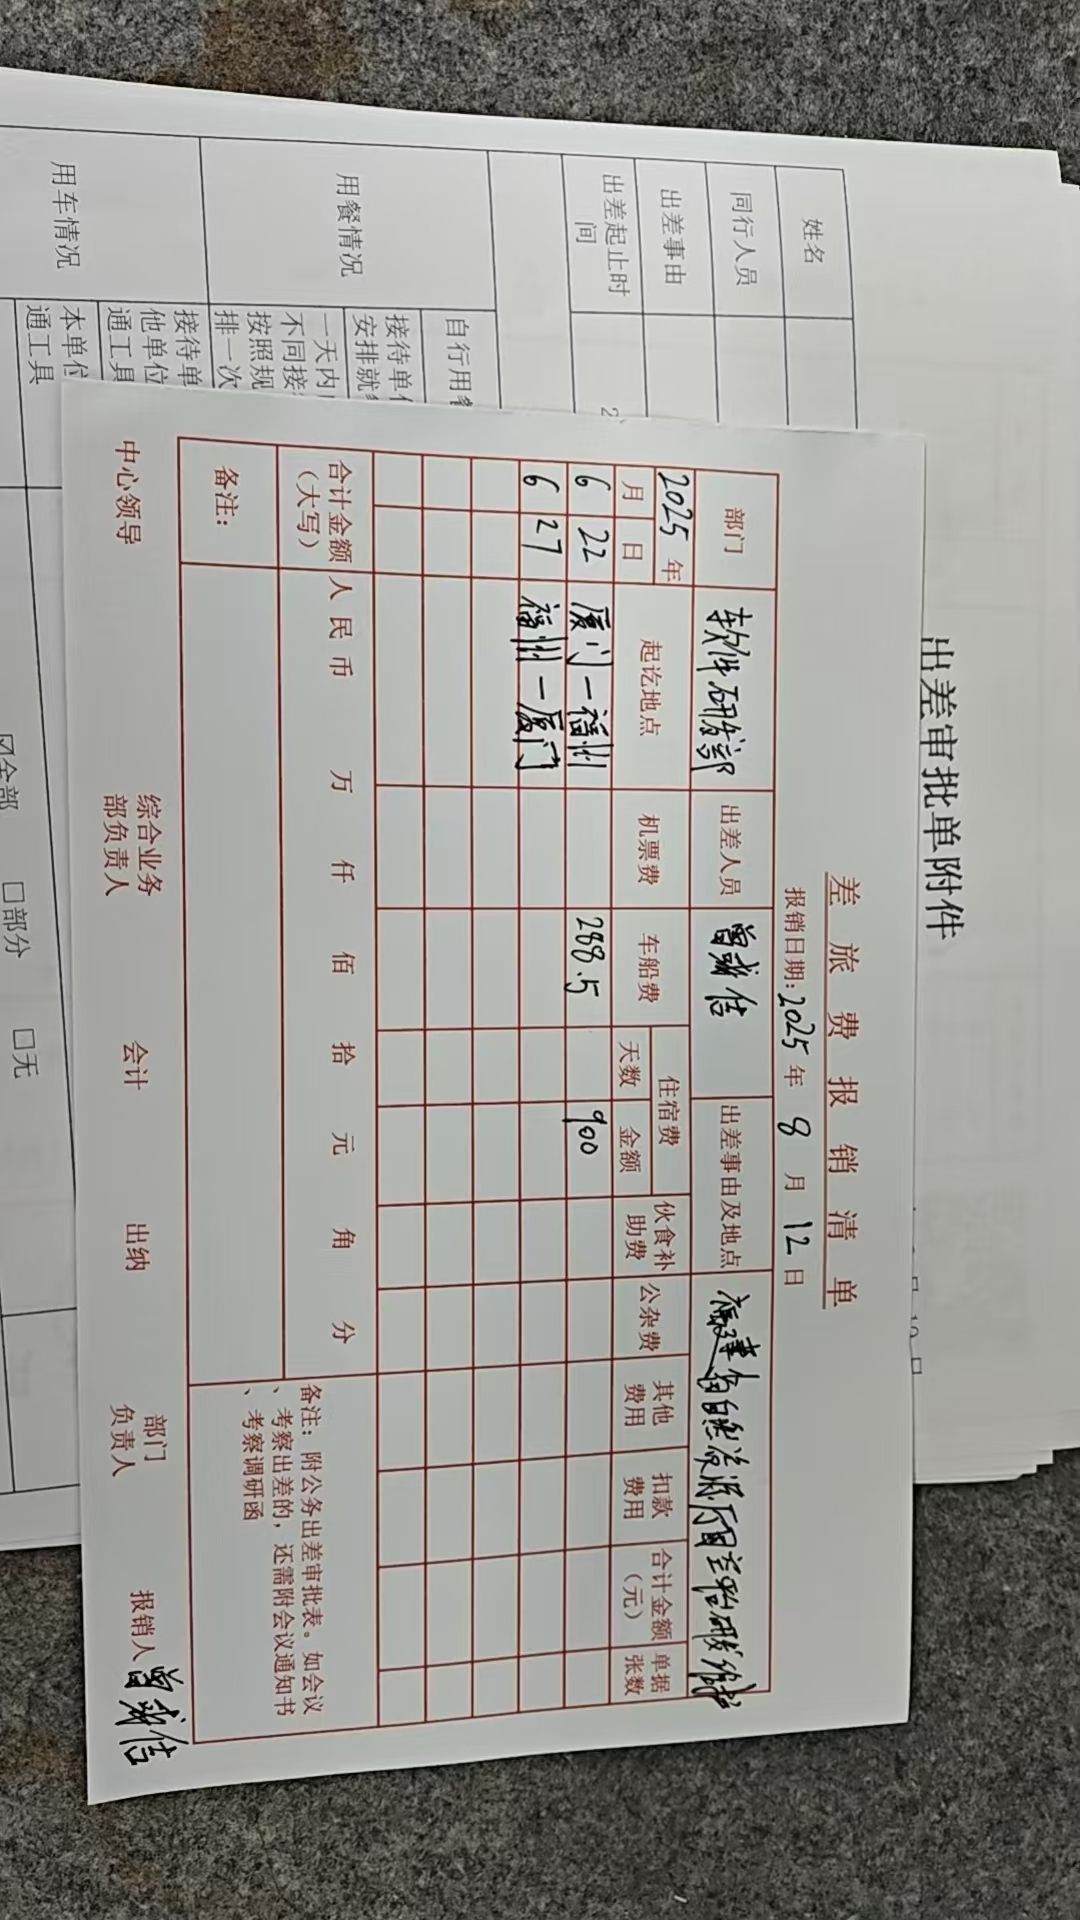 出差审批单附件
姓名
同行人员
出差事由
出差起止时间
2
用餐情况
自行用餐
接待单位
安排就餐
一天内
不同接
按照规
排一次
用车情况
接待单
他单位
通工具
本单位
通工具
☑全部 □部分 □无
差旅费报销清单
报销日期：2025年 8 月 12 日
部门 软件研发部 出差人员 出差事由及地点 福建省自然资源厅
2025 年 起讫地点 机票费 车船费 住宿费 伙食补助费 公杂费 其他费用 扣款费用 合计金额（元） 单据张数
月 日 天数 金额
6 22 厦门—福州 288.5 900
6 27 福州—厦门
合计金额（大写） 人民币 万 仟 佰 拾 元 角 分
备注：
备注：附公务出差审批表。如会议
、考察出差的，还需附会议通知书
、考察调研函
中心领导 综合业务部负责人 会计 出纳 部门负责人 报销人